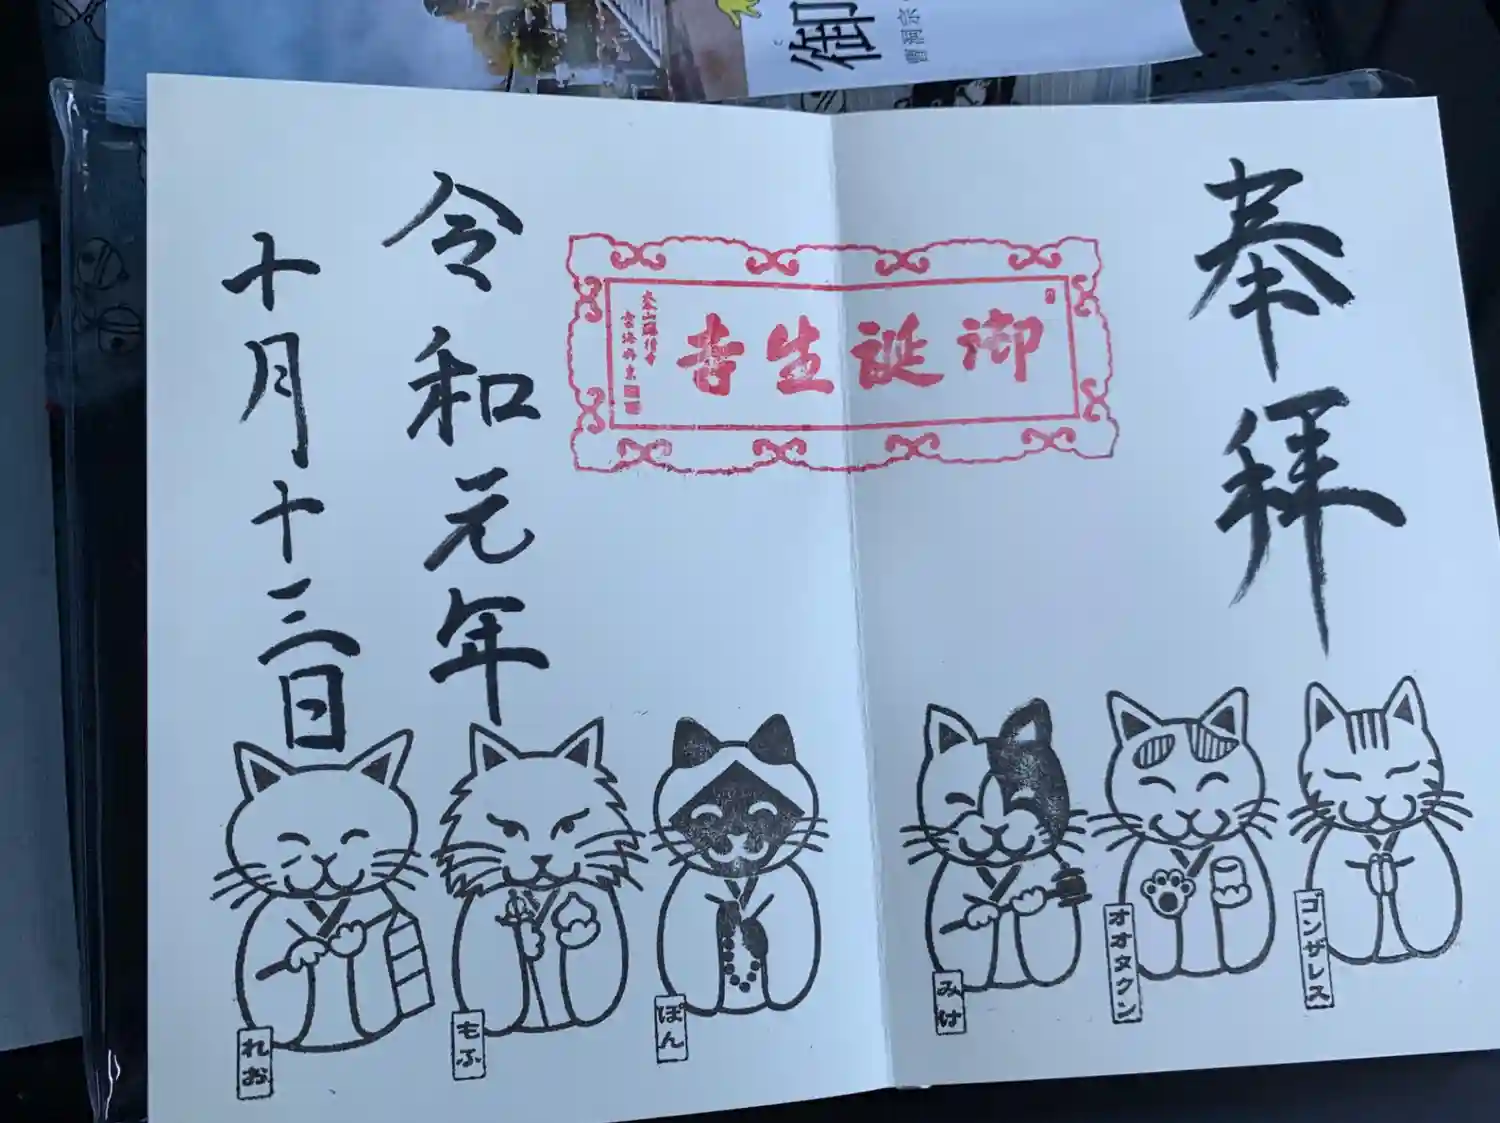 御
曹洞宗
奉拝
御誕生寺
令和元年
十月十三日
ゴンザレス
オオタクン
みけ
ぽん
もふ
れお